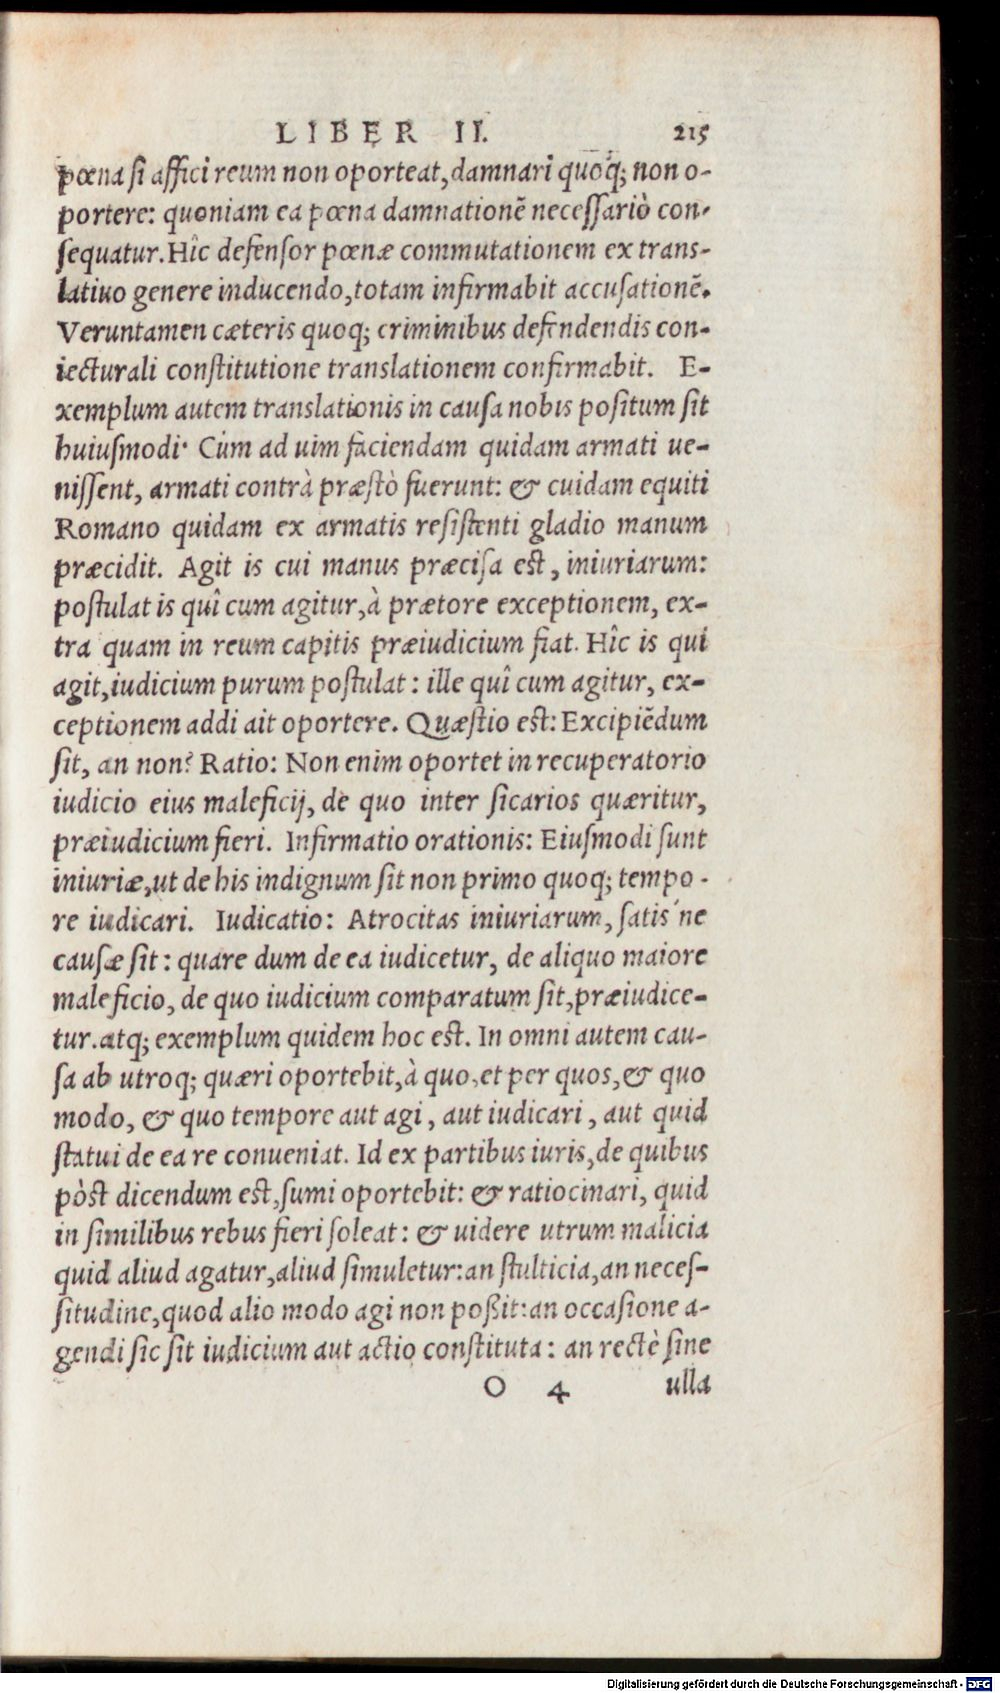 LIBER II. 215
pœna si affici reum non oporteat, damnari quoq; non o-
portere: quoniam ea pœna damnationẽ necessariò con-
sequatur. Hîc defensor pœnæ commutationem ex trans-
latiuo genere inducendo, totam infirmabit accusationẽ.
Veruntamen cæteris quoq; criminibus defendendis con-
iecturali constitutione translationem confirmabit. E-
xemplum autem translationis in causa nobis positum sit
huiusmodi· Cùm ad uim faciendam quidam armati ue-
nissent, armati contrà præstò fuerunt: & cuidam equiti
Romano quidam ex armatis resistenti gladio manum
præcidit. Agit is cui manus præcisa est, iniuriarum:
postulat is quî cum agitur, à prætore exceptionem, ex-
tra quam in reum capitis præiudicium fiat. Hîc is qui
agit, iudicium purum postulat: ille quî cum agitur, ex-
ceptionem addi ait oportere. Quæstio est: Excipiẽdum
sit, an non? Ratio: Non enim oportet in recuperatorio
iudicio eius maleficij, de quo inter sicarios quæritur,
præiudicium fieri. Infirmatio orationis: Eiusmodi sunt
iniuriæ, ut de his indignum sit non primo quoq; tempo-
re iudicari. Iudicatio: Atrocitas iniuriarum, satis´ne
causæ sit: quare dum de ea iudicetur, de aliquo maiore
maleficio, de quo iudicium comparatum sit, præiudice-
tur. atq; exemplum quidem hoc est. In omni autem cau-
sa ab utroq; quæri oportebit, à quo, et per quos, & quo
modo, & quo tempore aut agi, aut iudicari, aut quid
statui de ea re conueniat. Id ex partibus iuris, de quibus
pòst dicendum est, sumi oportebit: & ratiocinari, quid
in similibus rebus fieri soleat: & uidere utrum malicia
quid aliud agatur, aliud simuletur: an stulticia, an neces-
situdine, quod alio modo agi non poßit: an occasione a-
gendi sic sit iudicium aut actio constituta: an rectè sine
O 4 ulla
Digitalisierung gefördert durch die Deutsche Forschungsgemeinschaft - DFG